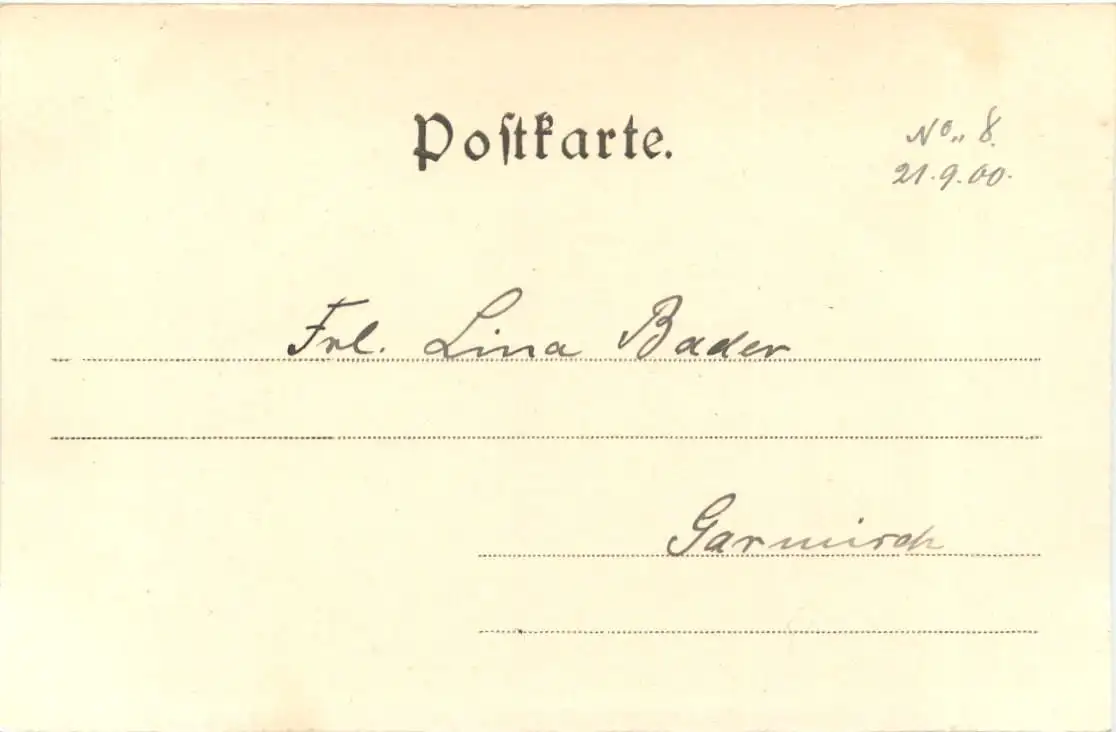 Postkarte.
No. 8.
21.9.00.
Frl. Lina Bader
Garmisch